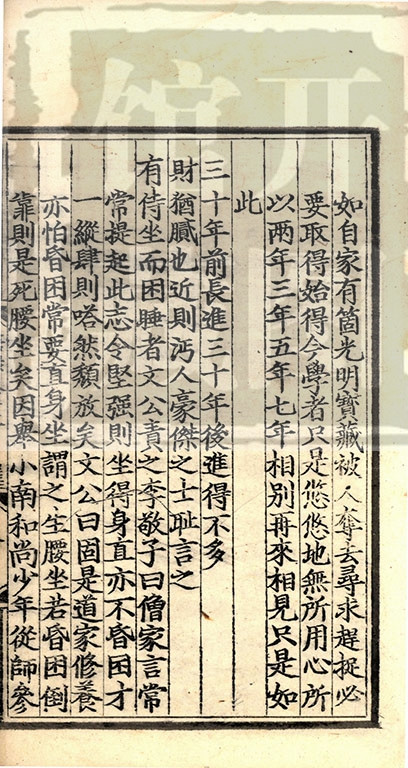 如自家有箇光明寶藏被人奪去尋求趕捉必
要取得始得今學者只是悠悠地無所用心所
以兩年三年五年七年相別再來相見只是如
此
三十年前長進三十年後進得不多
財猶膩也近則汚人豪傑之士恥言之
有侍坐而困睡者文公責之李敬子曰僧家言常
常提起此志令堅强則坐得身直亦不昏困才
一縱肆則嗒然頹放矣文公曰固是道家修養
亦怕昏困常要直身坐謂之生腰坐若昏困倒
靠則是死腰坐矣因舉小南和尚少年從師參